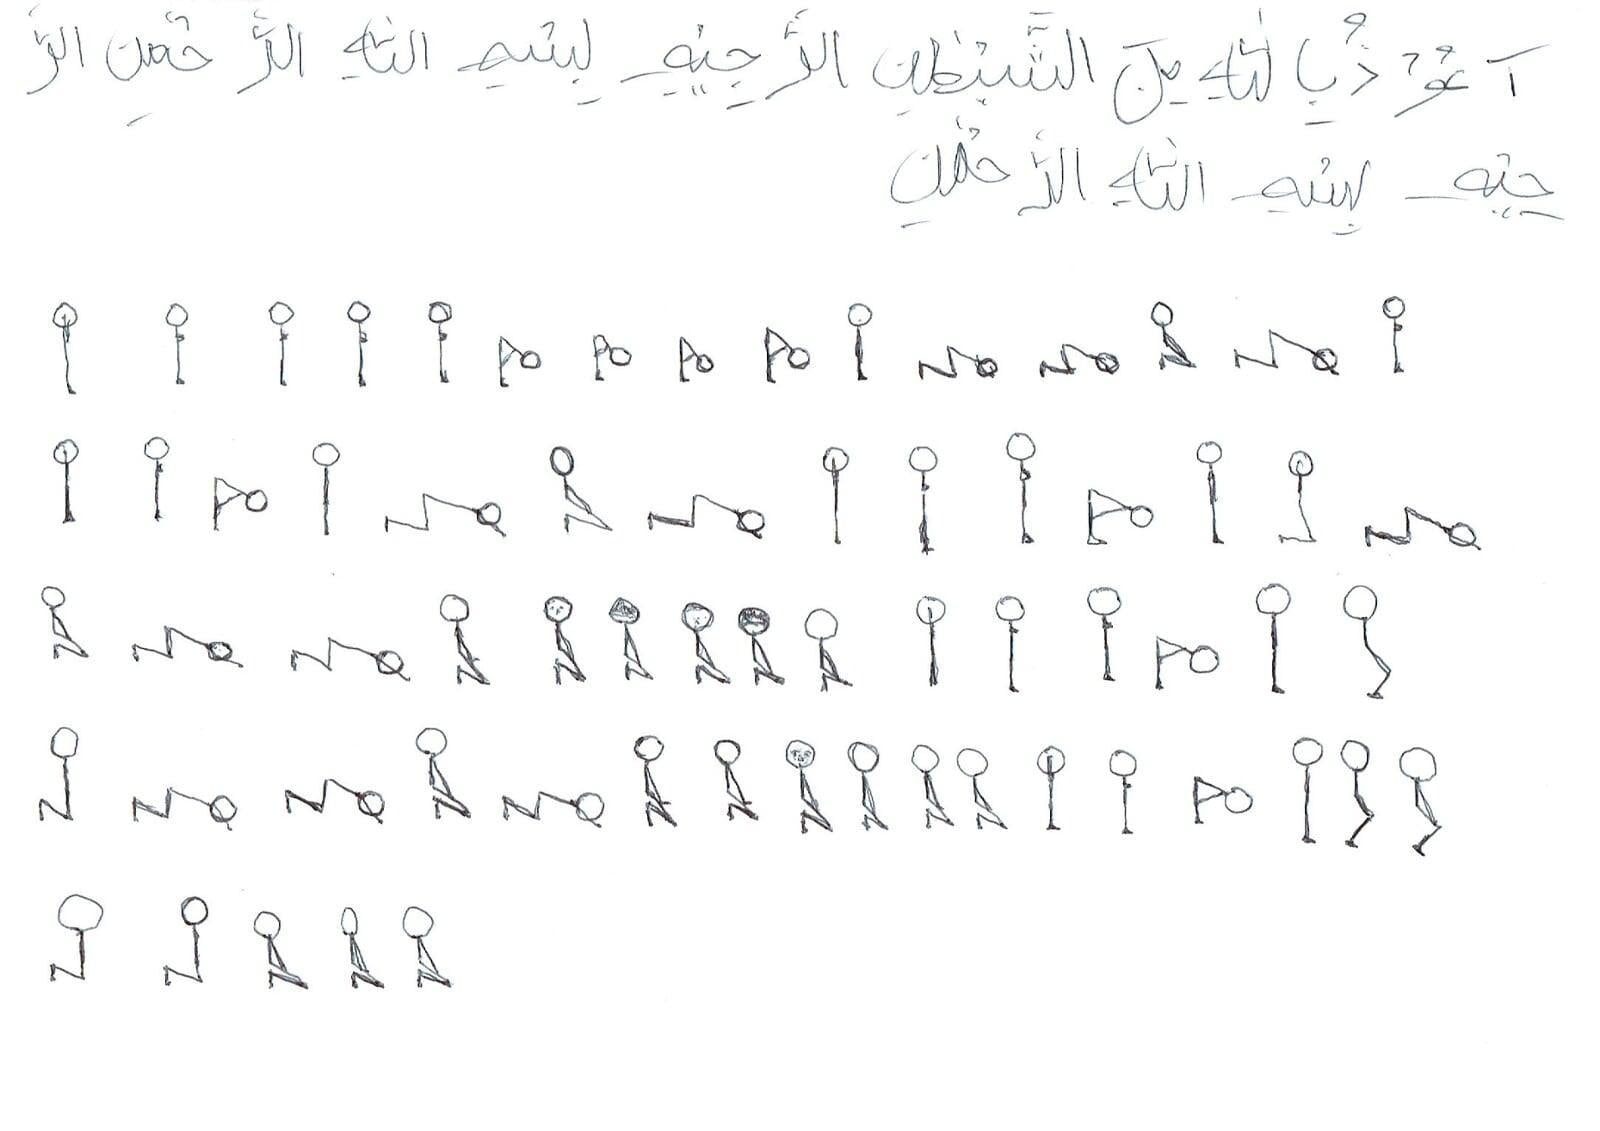 اَعُوْذُبِا للّٰهِ مِنَ الشَّيْطٰنِ الرَّجِيْمِ بِسْمِ اللّٰهِ الرَّ حْمٰنِ الرَّ
حِيْمِ بِسْمِ اللّٰهِ الرَّ حْمٰنِ